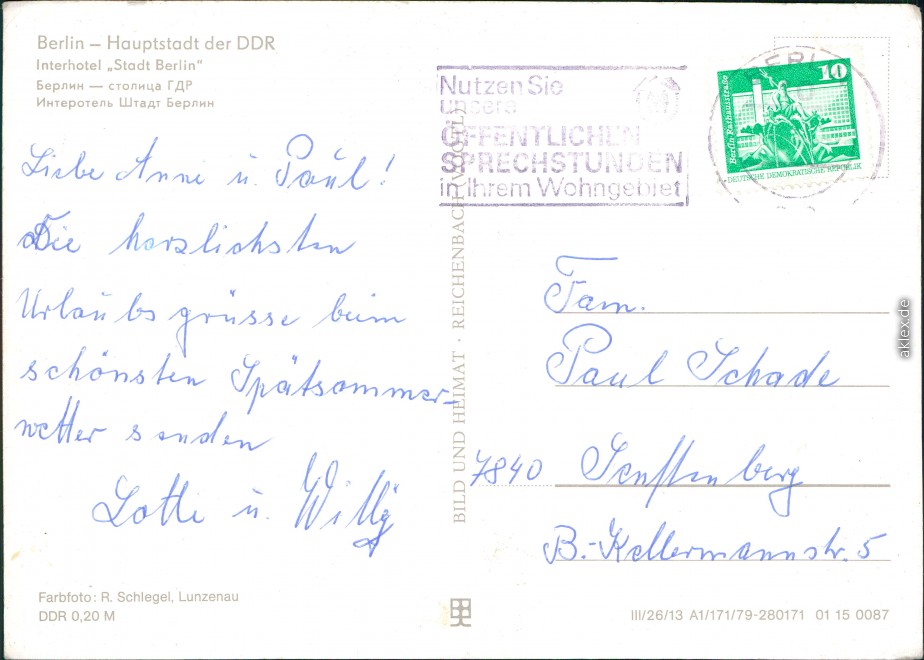 Berlin – Hauptstadt der DDR
Interhotel „Stadt Berlin"
Берлин — столица ГДР
Интеротель Штадт Берлин
Liebe Anne u. Paul!
Die herzlichsten
Urlaubsgrüsse beim
schönsten Spätsommer-
wetter senden
Lotte u. Willy
Farbfoto: R. Schlegel, Lunzenau
DDR 0,20 M
BILD UND HEIMAT · REICHENBACH (VOGTL)
Nutzen Sie
unsere
ÖFFENTLICHEN
SPRECHSTUNDEN
in Ihrem Wohngebiet
BERLIN
10
Berlin-Rathausstraße
DEUTSCHE DEMOKRATISCHE REPUBLIK
Fam.
Paul Schade
7840 Senftenberg
B.-Kellermannstr. 5
III/26/13 A1/171/79-280171 01 15 0087
aklex.de